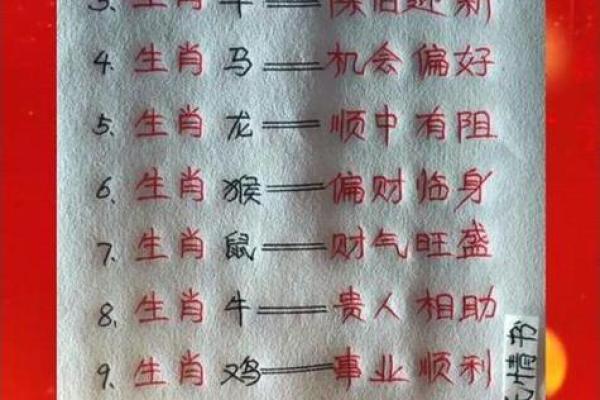 3、生肖 ══ 迎新
4、生肖 马══机会 偏好
5、生肖 龙══顺中 有阻
6、生肖 猴══偏财临身
7、生肖 鼠══财气旺盛
8、生肖 牛══贵人 相助
9、生肖 鸡══事业 顺利
情书